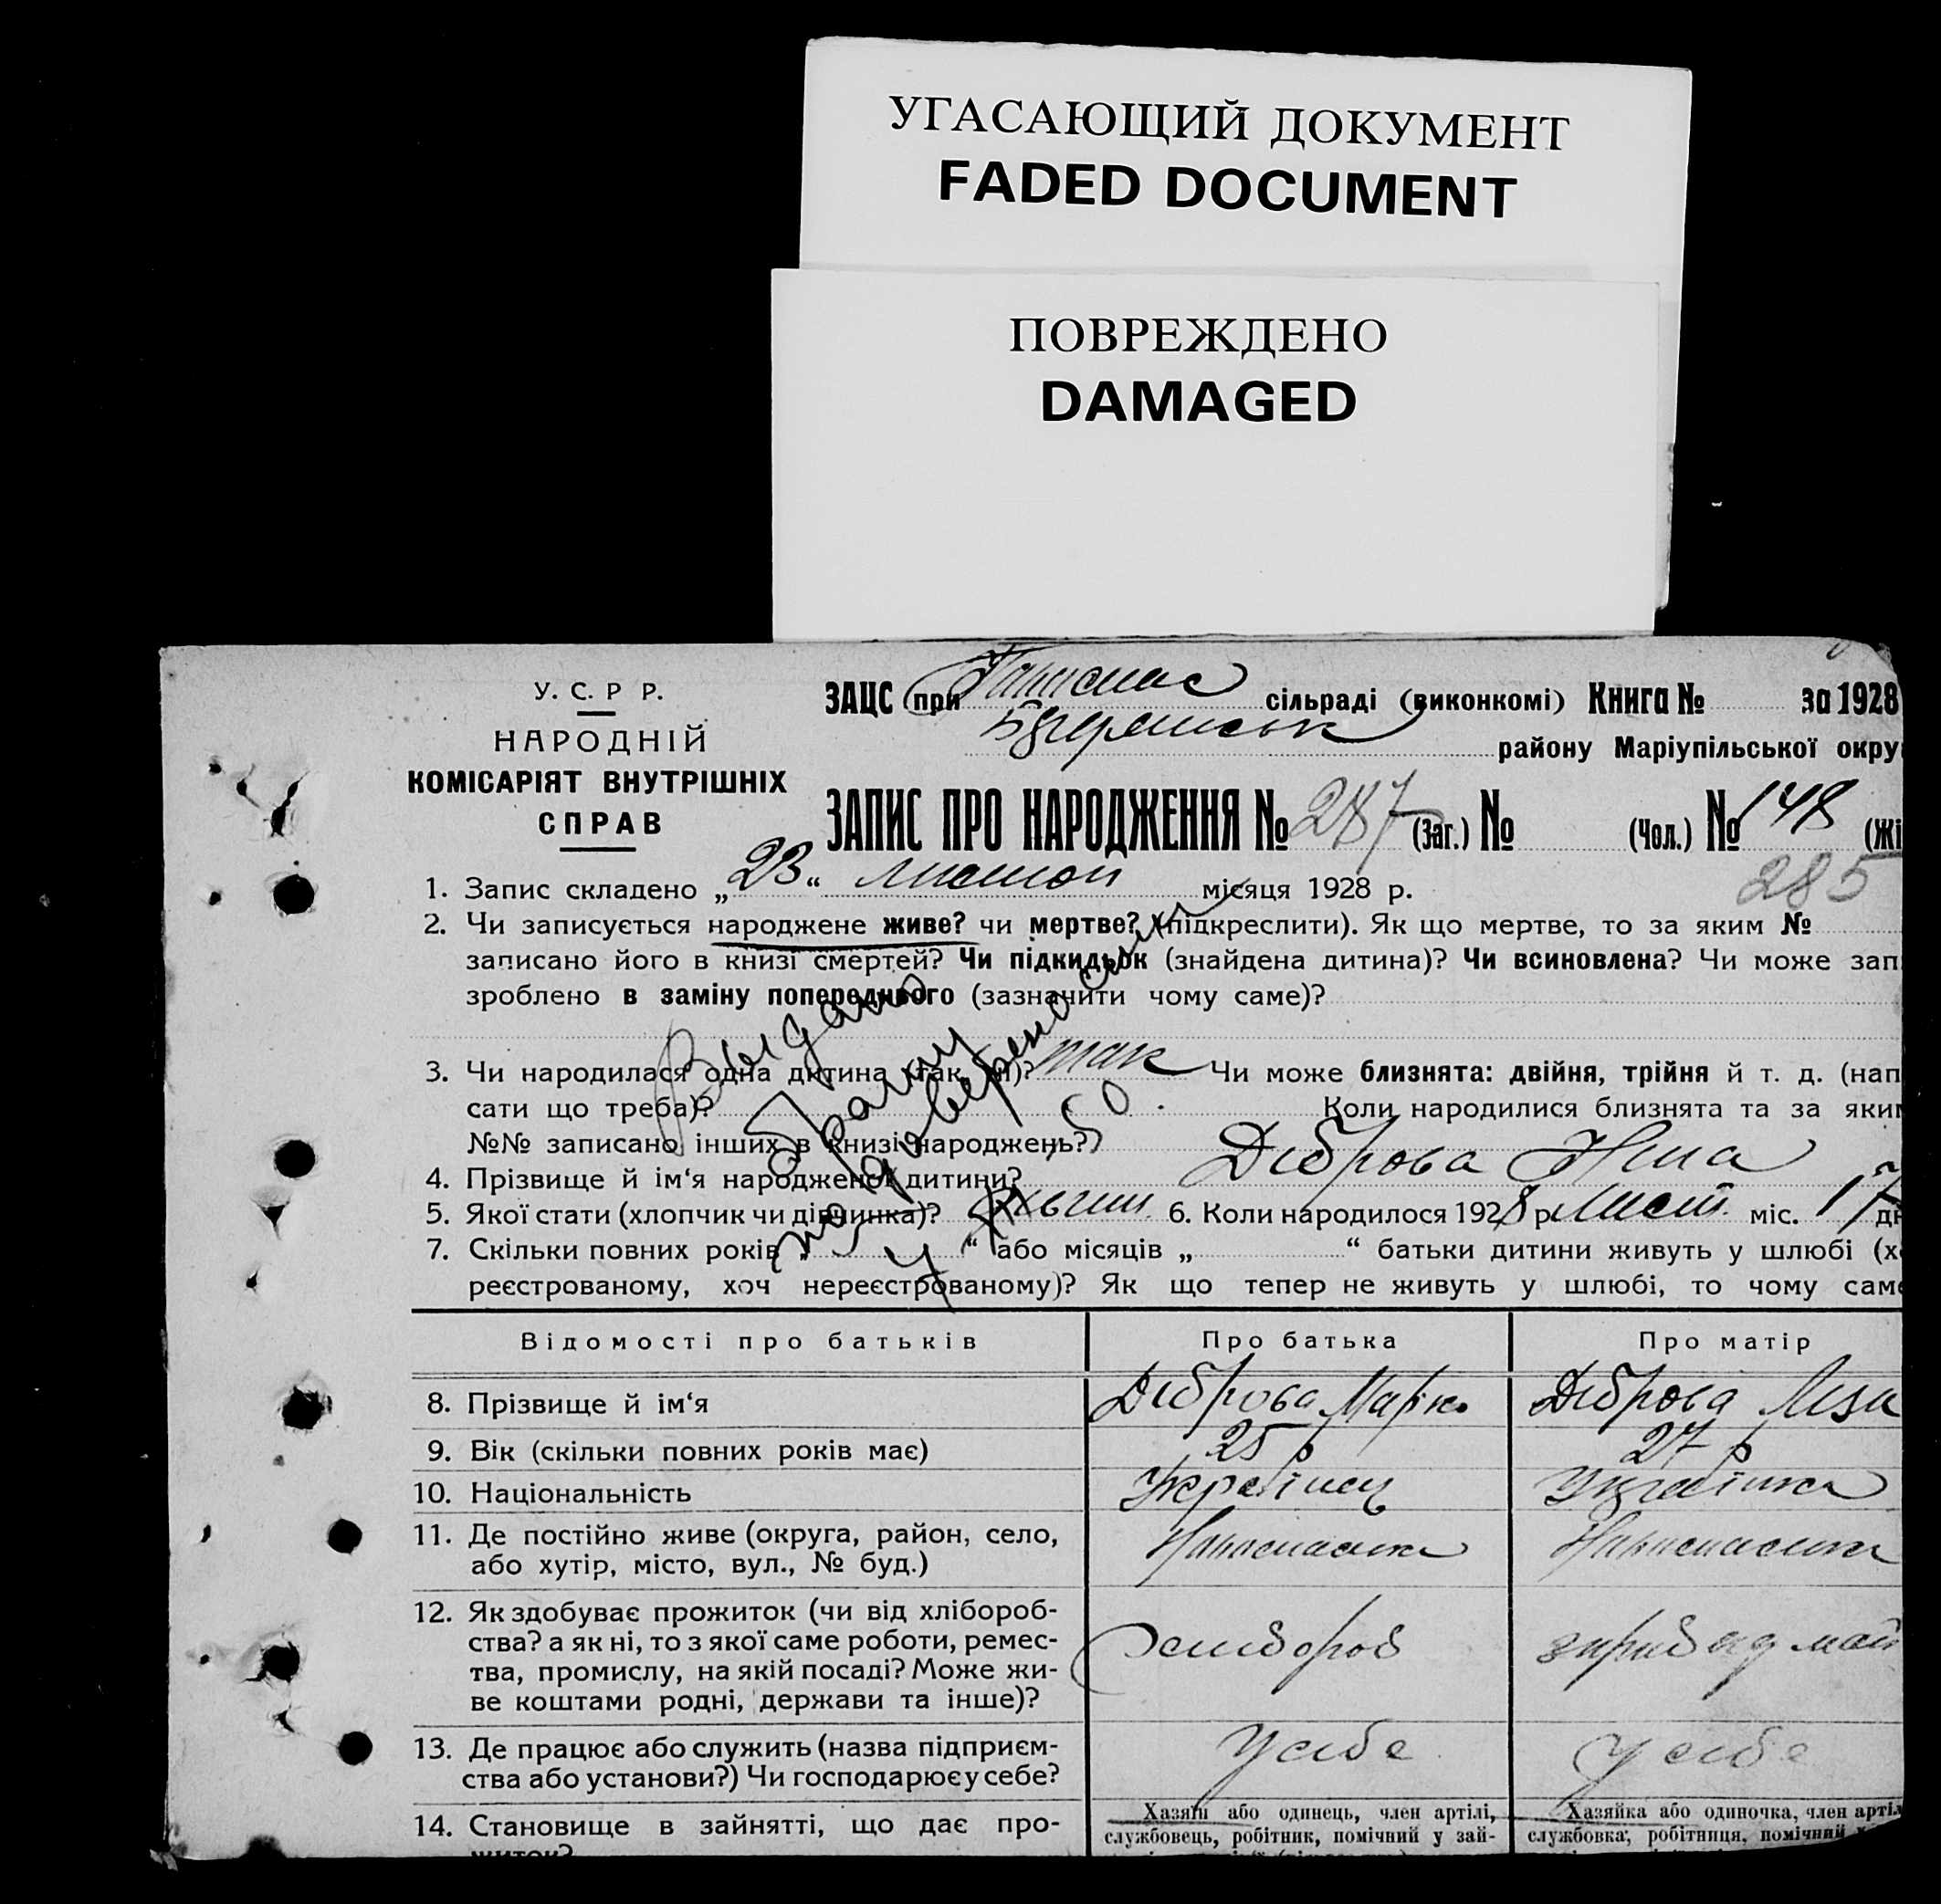 УГАСАЮЩИЙ ДОКУМЕНТ
FADED DOCUMENT
ПОВРЕЖДЕНО
DAMAGED
У. С. Р Р.
НАРОДНІЙ
КОМІСАРІЯТ ВНУТРІШНІХ
СПРАВ
ЗАЦС (при сільраді (виконкомі) Книга № за 1928
району Маріупільської окру
ЗАПИС ПРО НАРОДЖЕННЯ № 287 (Заг.) № (Чол.) № 148 (Жі
285
1. Запис складено „23“ листоп місяця 1928 р.
2. Чи записується народжене живе? чи мертве? (підкреслити). Як що мертве, то за яким №
записано його в книзі смертей? Чи підкидьок (знайдена дитина)? Чи всиновлена? Чи може зап
зроблено в заміну попереднього (зазначити чому саме)?
3. Чи народилася одна дитина (так, ні)? так Чи може близнята: двійня, трійня й т. д. (нап
сати що треба)? Коли народилися близнята та за яки
№№ записано інших в книзі народжень?
4. Прізвище й ім‘я народженої дитини? Діброва Ніна
5. Якої стати (хлопчик чи дівчинка)? 6. Коли народилося 1928 р. Лист. міс. 17 дн
7. Скільки повних років „ “ або місяців „ “ батьки дитини живуть у шлюбі (х
реєстрованому, хоч нереєстрованому)? Як що тепер не живуть у шлюбі, то чому сам
Выдано
Відомості про батьків Про батька Про матір
8. Прізвище й ім‘я Діброва Марко Діброва
9. Вік (скільки повних років має) 25 р 27 р
10. Національність Українец Українка
11. Де постійно живе (округа, район, село,
або хутір, місто, вул., № буд.)
12. Як здобуває прожиток (чи від хлібороб-
ства? а як ні, то з якої саме роботи, ремес-
тва, промислу, на якій посаді? Може жи-
ве коштами родні, держави та інше)?
13. Де працює або служить (назва підприєм-
ства або установи?) Чи господарює у себе? У себе У себе
14. Становище в зайнятті, що дає про-
житок?
Хазяїн або одинець, член артілі,
службовець, робітник, помічний у зай-
Хазяйка або одиночка, член артіл
службовка, робітниця, помічний